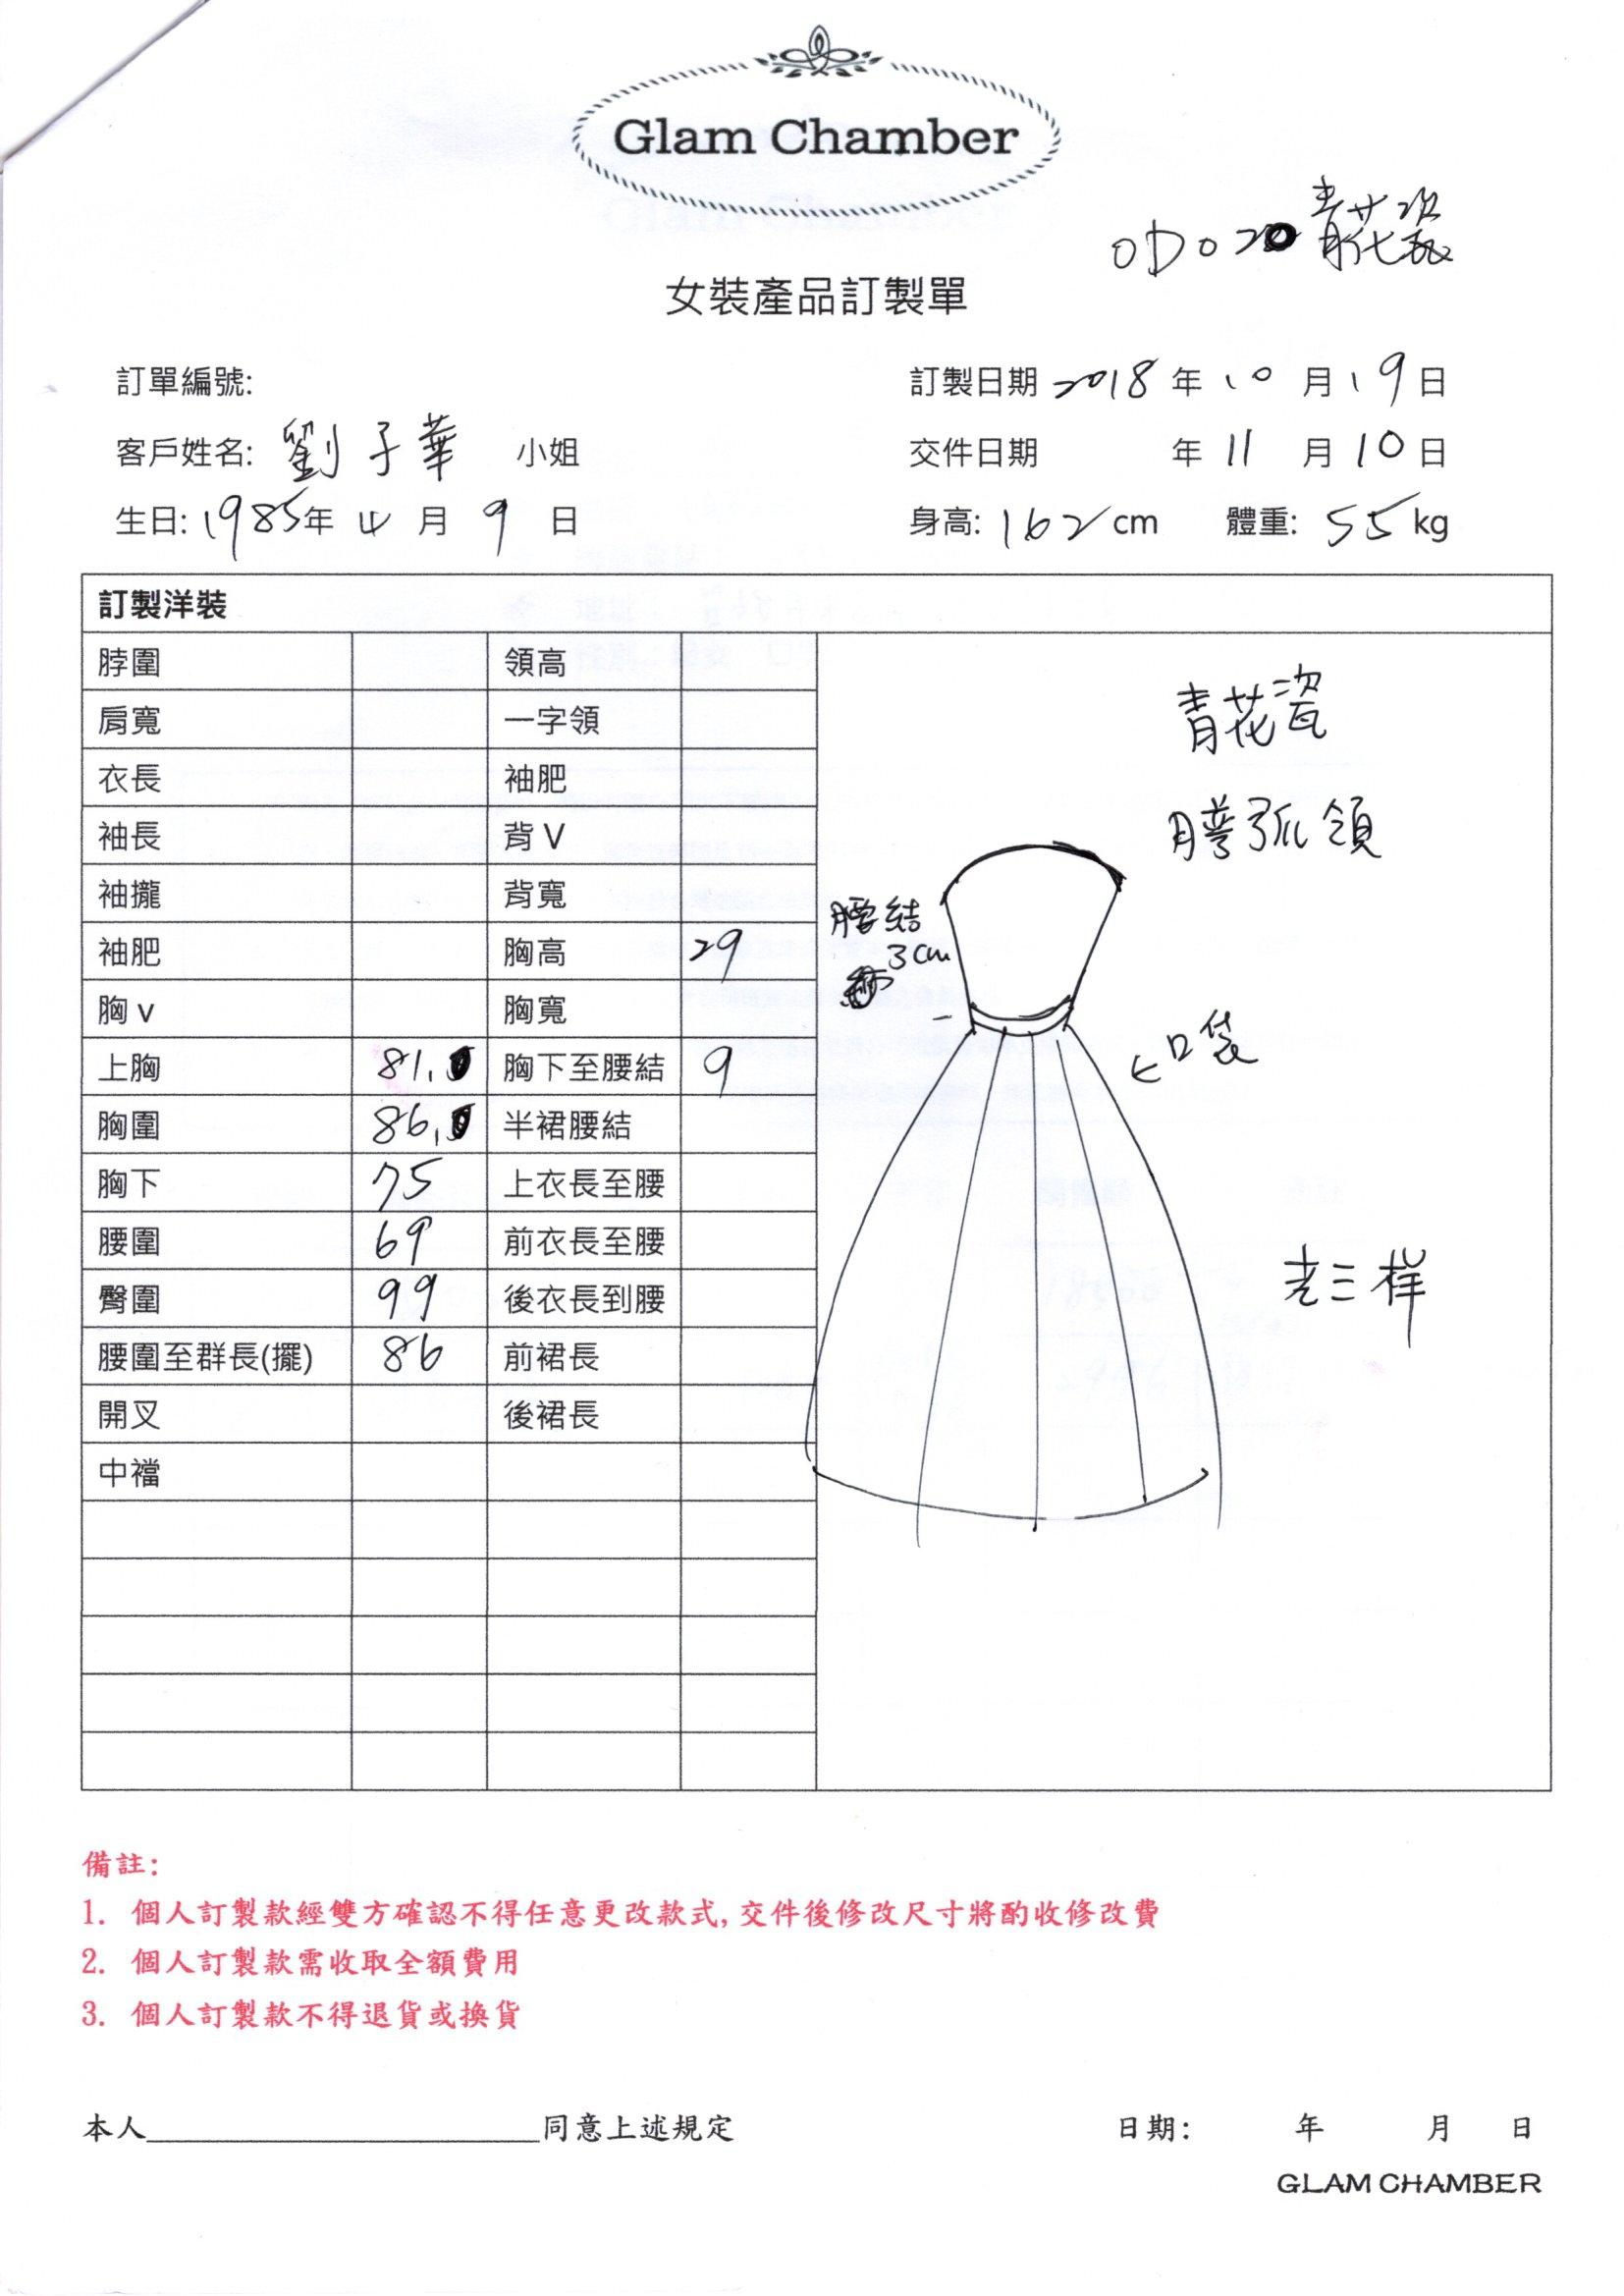 Glam Chamber
青花瓷
女裝產品訂製單
訂單編號: 訂製日期 2018 年 10 月 19 日
客戶姓名: 劉子華 小姐 交件日期 年 11 月 10 日
生日: 1985年 4 月 9 日 身高: 162 cm 體重: 55 kg
訂製洋裝
脖圍 領高
肩寬 一字領
衣長 袖肥
袖長 背 V
袖攏 背寬
袖肥 胸高 29
胸 v 胸寬
上胸 81. 胸下至腰結 9
胸圍 86. 半裙腰結
胸下 75 上衣長至腰
腰圍 69 前衣長至腰
臀圍 99 後衣長到腰
腰圍至群長(擺) 86 前裙長
開叉 後裙長
中襠
青花瓷
弧領
腰結
3cm
←口袋
老三样
備註:
1. 個人訂製款經雙方確認不得任意更改款式, 交件後修改尺寸將酌收修改費
2. 個人訂製款需收取全額費用
3. 個人訂製款不得退貨或換貨
本人____________________同意上述規定 日期: 年 月 日
GLAM CHAMBER